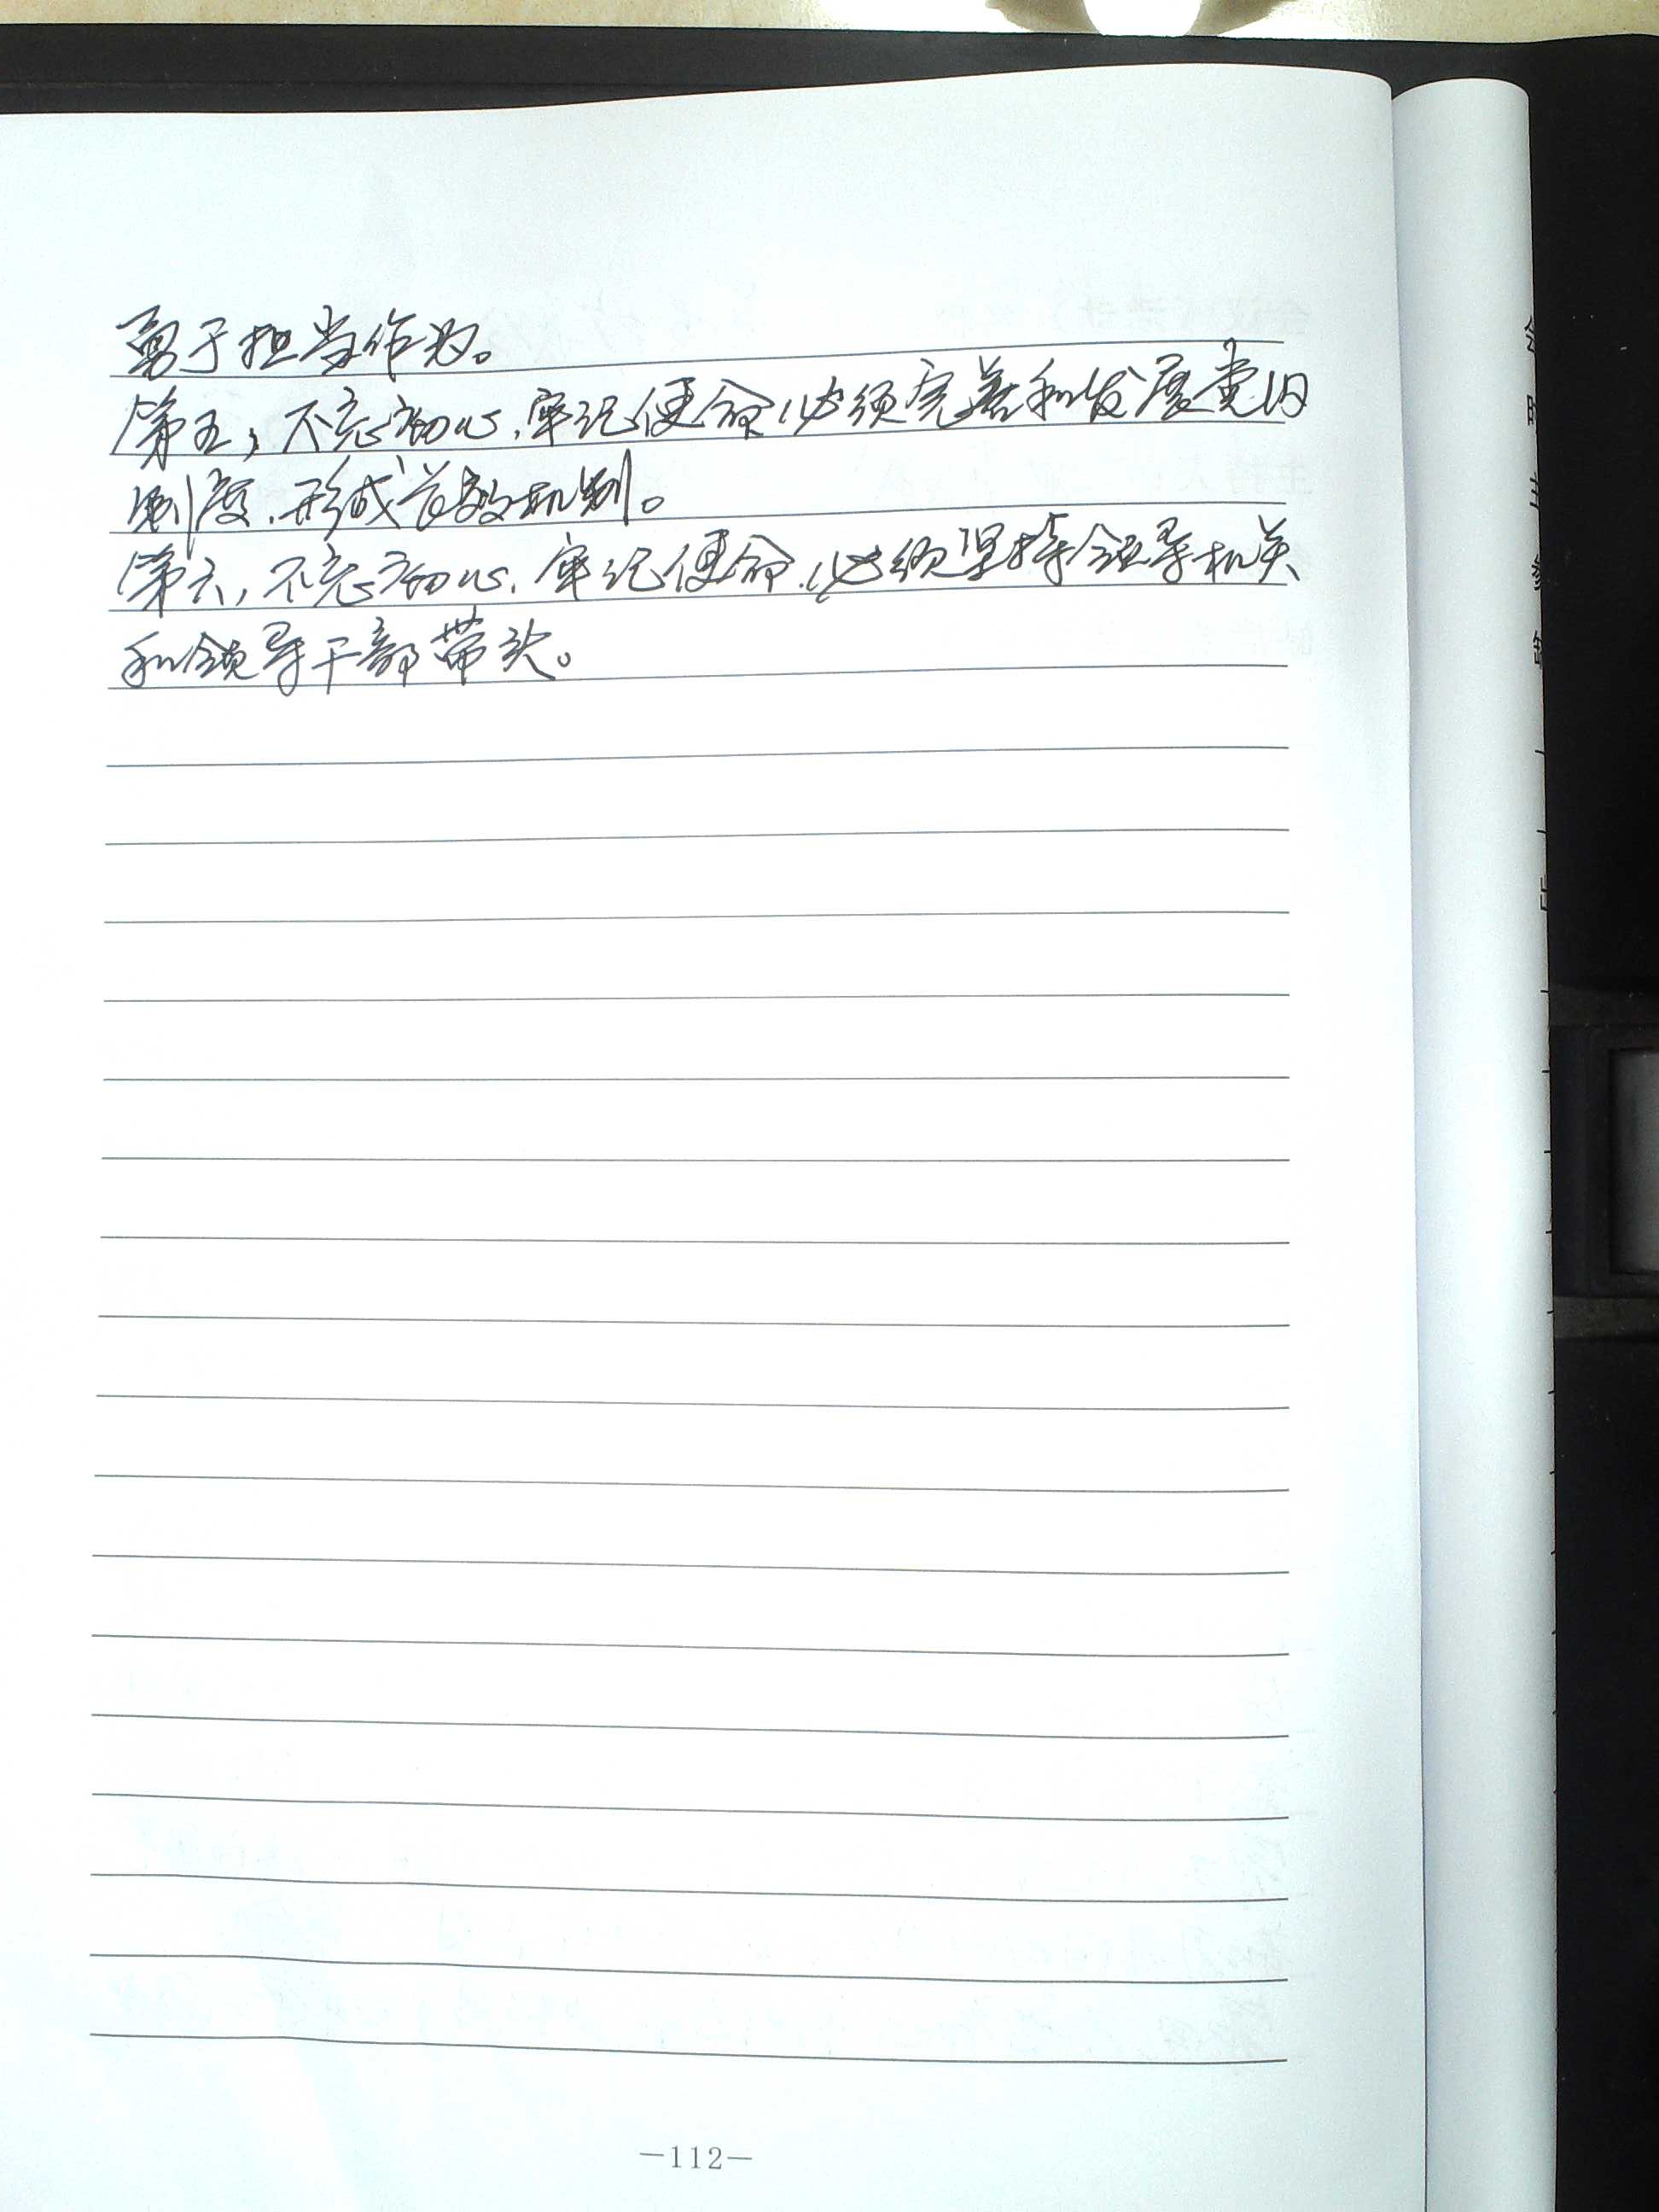 勇于担当作为。
第五，不忘初心、牢记使命，必须完善和发展党内
制度，形成长效机制。
第六，不忘初心、牢记使命，必须坚持领导机关
和领导干部带头。
—112—